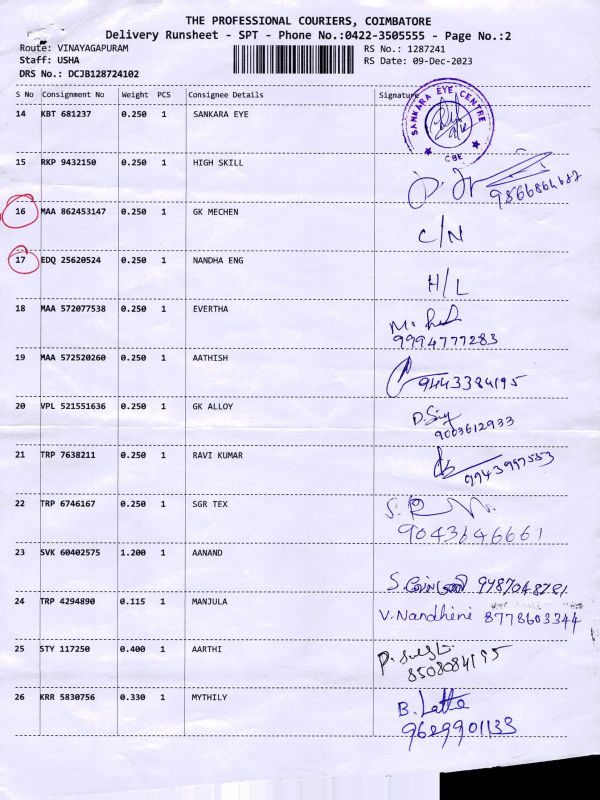 THE PROFESSIONAL COURIERS, COIMBATORE
Delivery Runsheet - SPT - Phone No.:0422-3505555 - Page No.:2
Route: VINAYAGAPURAM RS No.: 1287241
Staff: USHA RS Date: 09-Dec-2023
DRS No.: DCJB128724102
S No Consignment No Weight PCS Consignee Details Signature
14 KBT 681237 0.250 1 SANKARA EYE
SANKARA EYE CENTRE
CBE
15 RKP 9432150 0.250 1 HIGH SKILL
9866864682
16 MAA 862453147 0.250 1 GK MECHEN
C/N
17 EDQ 25620524 0.250 1 NANDHA ENG
H/L
18 MAA 572077538 0.250 1 EVERTHA
9994777283
19 MAA 572520260 0.250 1 AATHISH
9443384195
20 VPL 521551636 0.250 1 GK ALLOY
9003612933
21 TRP 7638211 0.250 1 RAVI KUMAR
9943997553
22 TRP 6746167 0.250 1 SGR TEX
9043646661
23 SVK 60402575 1.200 1 AANAND
S. 9787048781
24 TRP 4294890 0.115 1 MANJULA
V. Nandhini 8778603344
25 STY 117250 0.400 1 AARTHI
8508084195
26 KRR 5830756 0.330 1 MYTHILY
B. Latta
9629901133